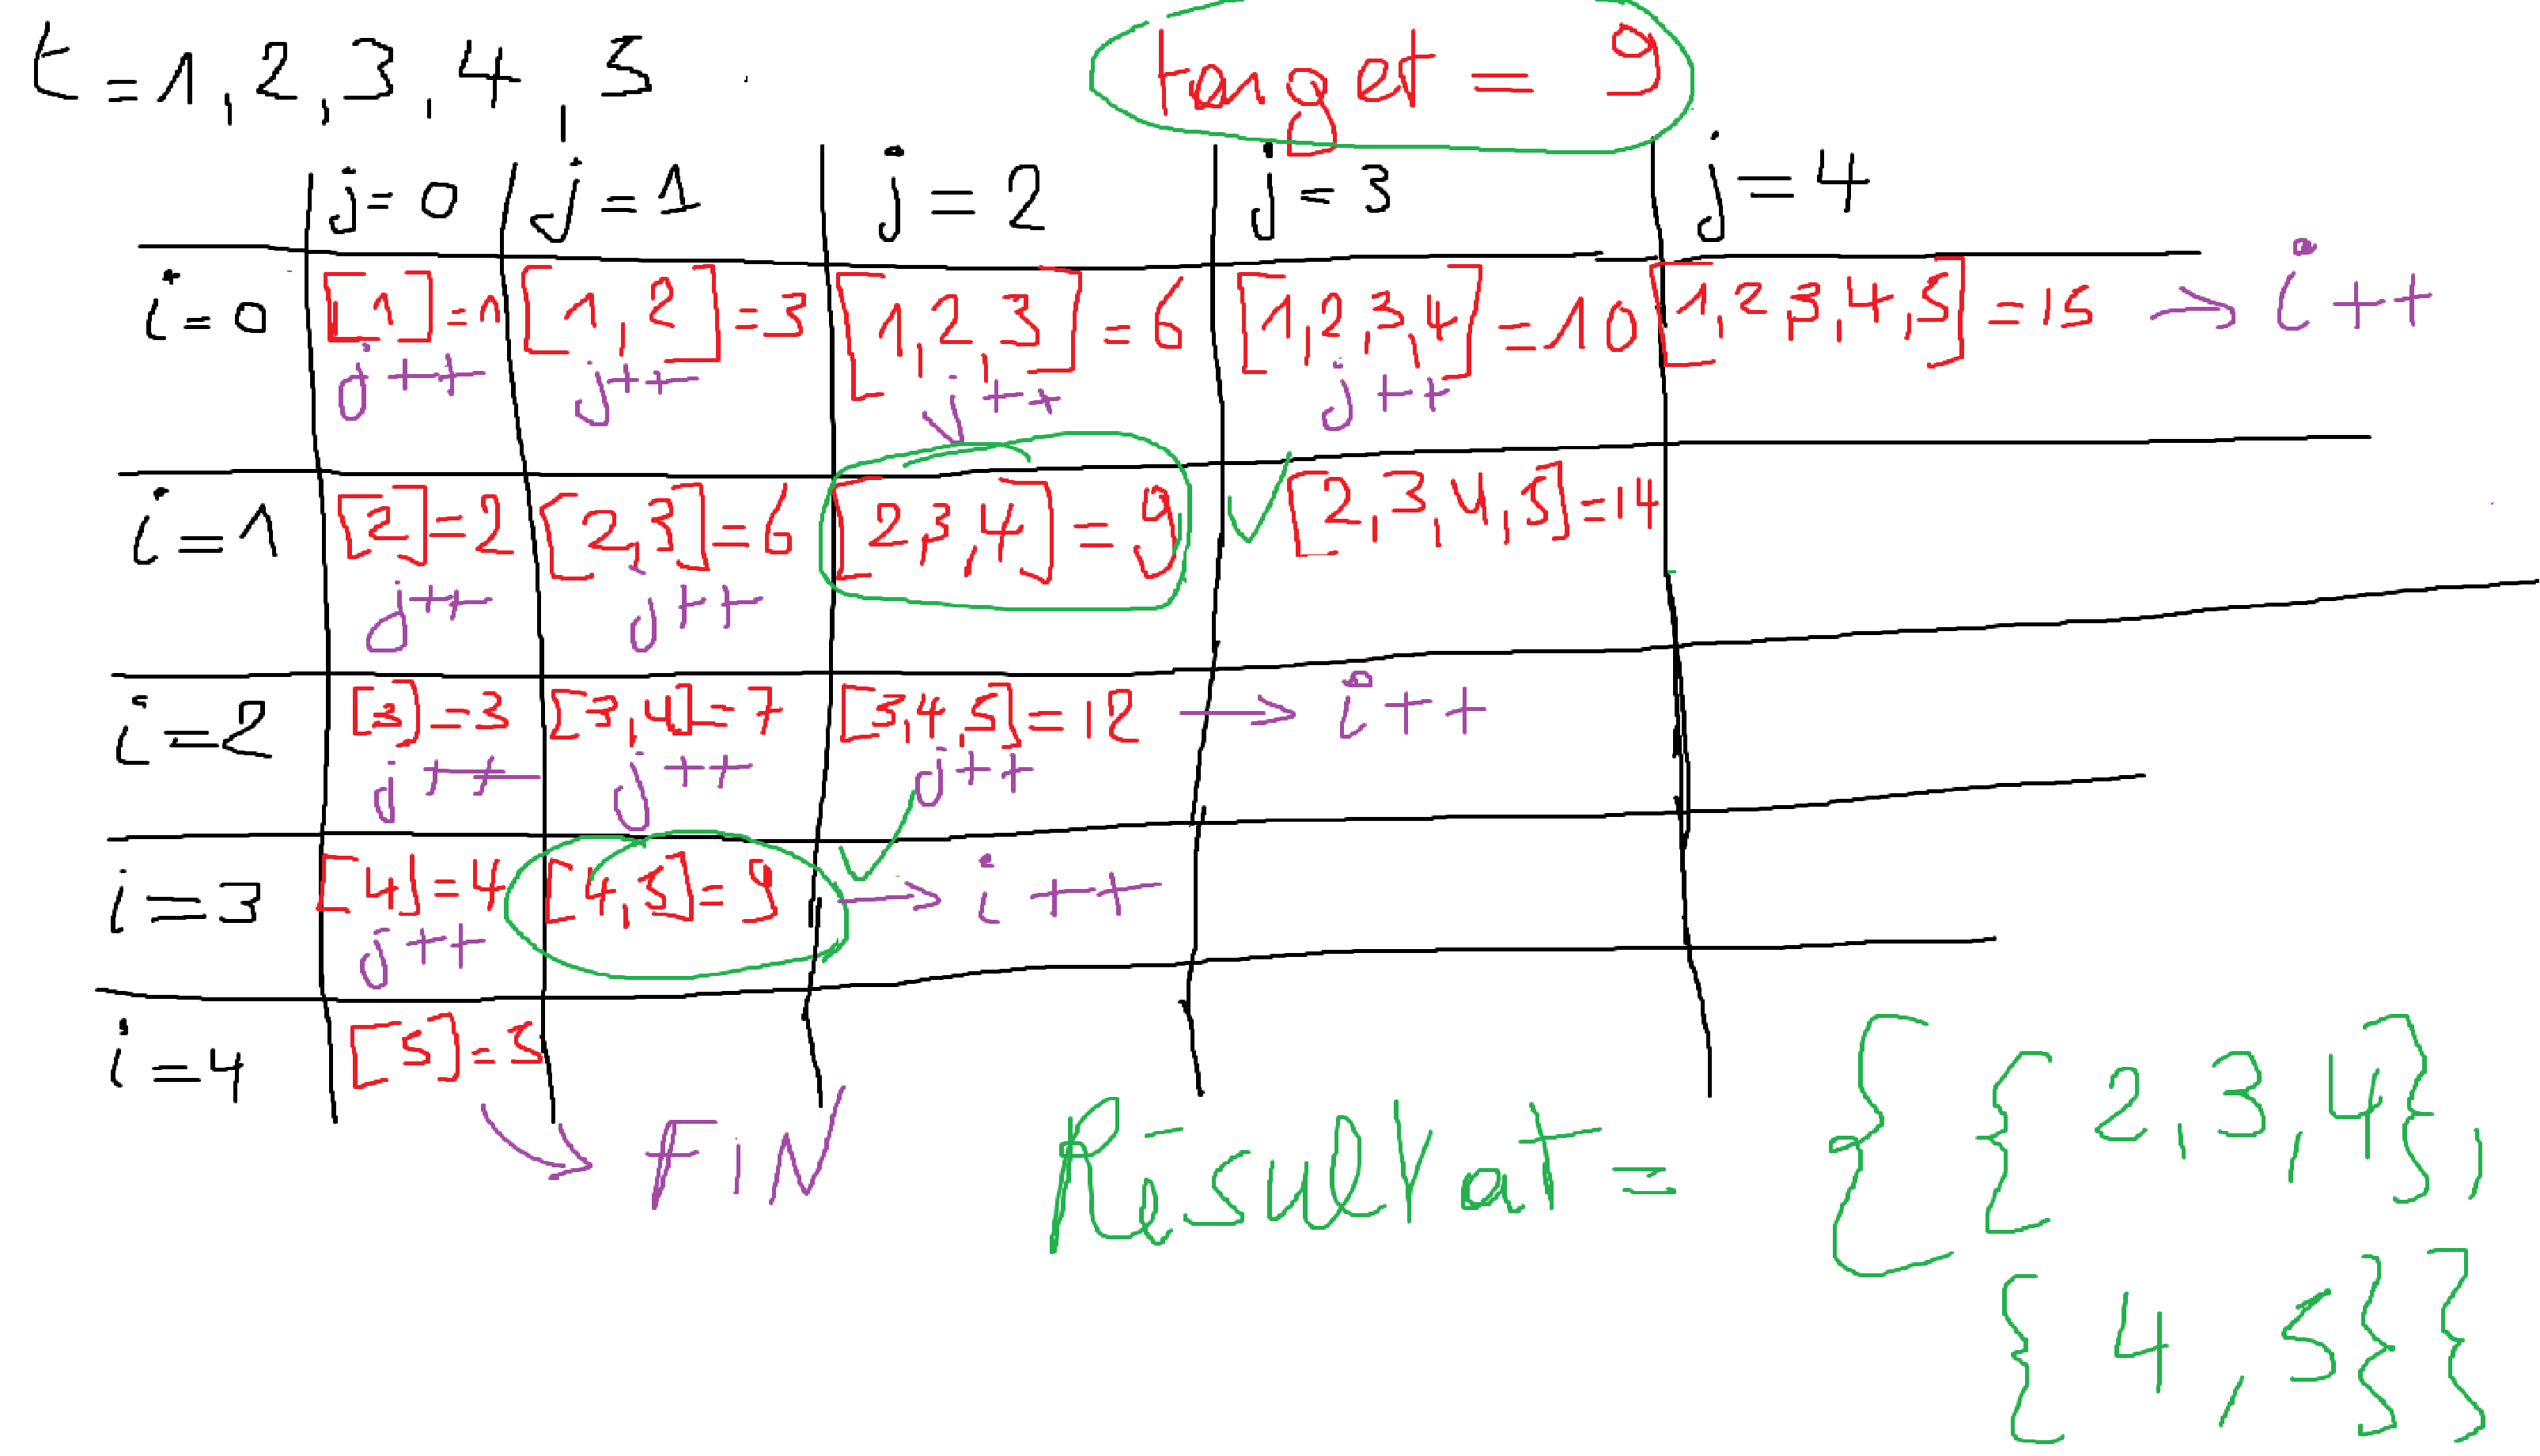 t = 1, 2, 3, 4, 5
target = 9
j = 0 j = 1 j = 2 j = 3 j = 4
i = 0 [1] = 1 [1, 2] = 3 [1, 2, 3] = 6 [1, 2, 3, 4] = 10 [1, 2, 3, 4, 5] = 15 → i ++
j++ j++ j++ j++
i = 1 [2] = 2 [2, 3] = 6 [2, 3, 4] = 9 ✓ [2, 3, 4, 5] = 14
j++ j++
i = 2 [3] = 3 [3, 4] = 7 [3, 4, 5] = 12 → i ++
j++ j++ j++
i = 3 [4] = 4 [4, 5] = 9 ✓ → i ++
j++
i = 4 [5] = 5
→ FiN
Résultat = { { 2, 3, 4 },
{ 4, 5 } }